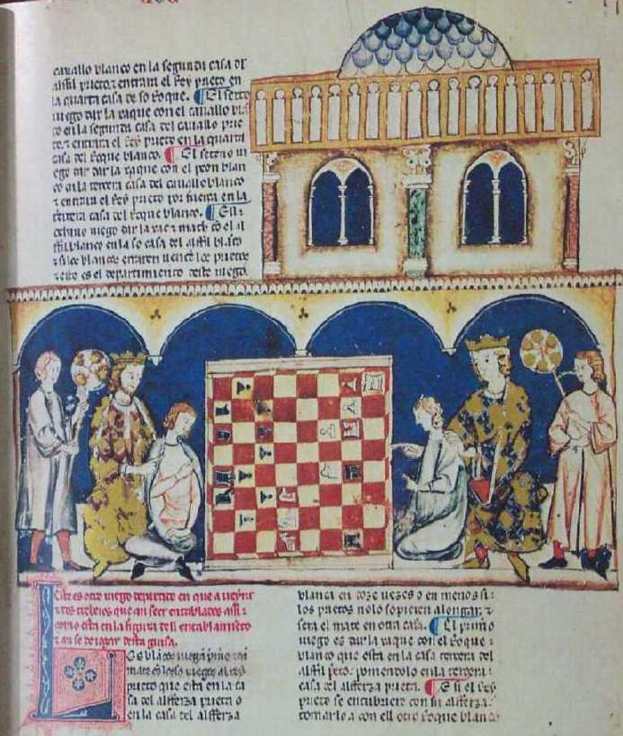 cauallo blanco en la segunda casa del
alffil prieto. z entrara el Rey prieto en
la quarta casa de so Roque. ¶ El sesto
iuego dar la xaque con el cauallo blan
co en la segunda casa del cauallo prie
to. z entrara el Rey prieto en la quarta
casa del Roque blanco. ¶ El seteno iu
ego dar la xaque con el peon blan
co en la tercera casa del cauallo blanco
z entrara el Rey prieto por fuerça en la
tercera casa del Roque blanco. ¶ El
ocheno iuego dar la xac z mach con el al
ffil blanco en la casa del alffil blanco
z si los blancos erraren uençen los prietos
z este es el departimiento deste iuego.
Este es otro iuego departido en que a
trebeios que an seer entablados assi
como esta en la figura dell entablamiento
z an se de iogar desta guisa.
Los blancos iuegan primero
mate all Rey
prieto que esta en la ca
sa del alfferza prieta o
en la casa del alfferza
blanca en doze uezes o en menos si
los prietos nolo sopieren alongar. z
sera el mate en otra casa. ¶ El primero
iuego es dar la xaque con el Roque
blanco que esta en la casa tercera del
alffil prieto. poniendolo en la tercera
casa del alfferza prieta. ¶ E si el Rey
prieto se encubriere con su alfferza
tomarlo a con ell otro Roque blanco